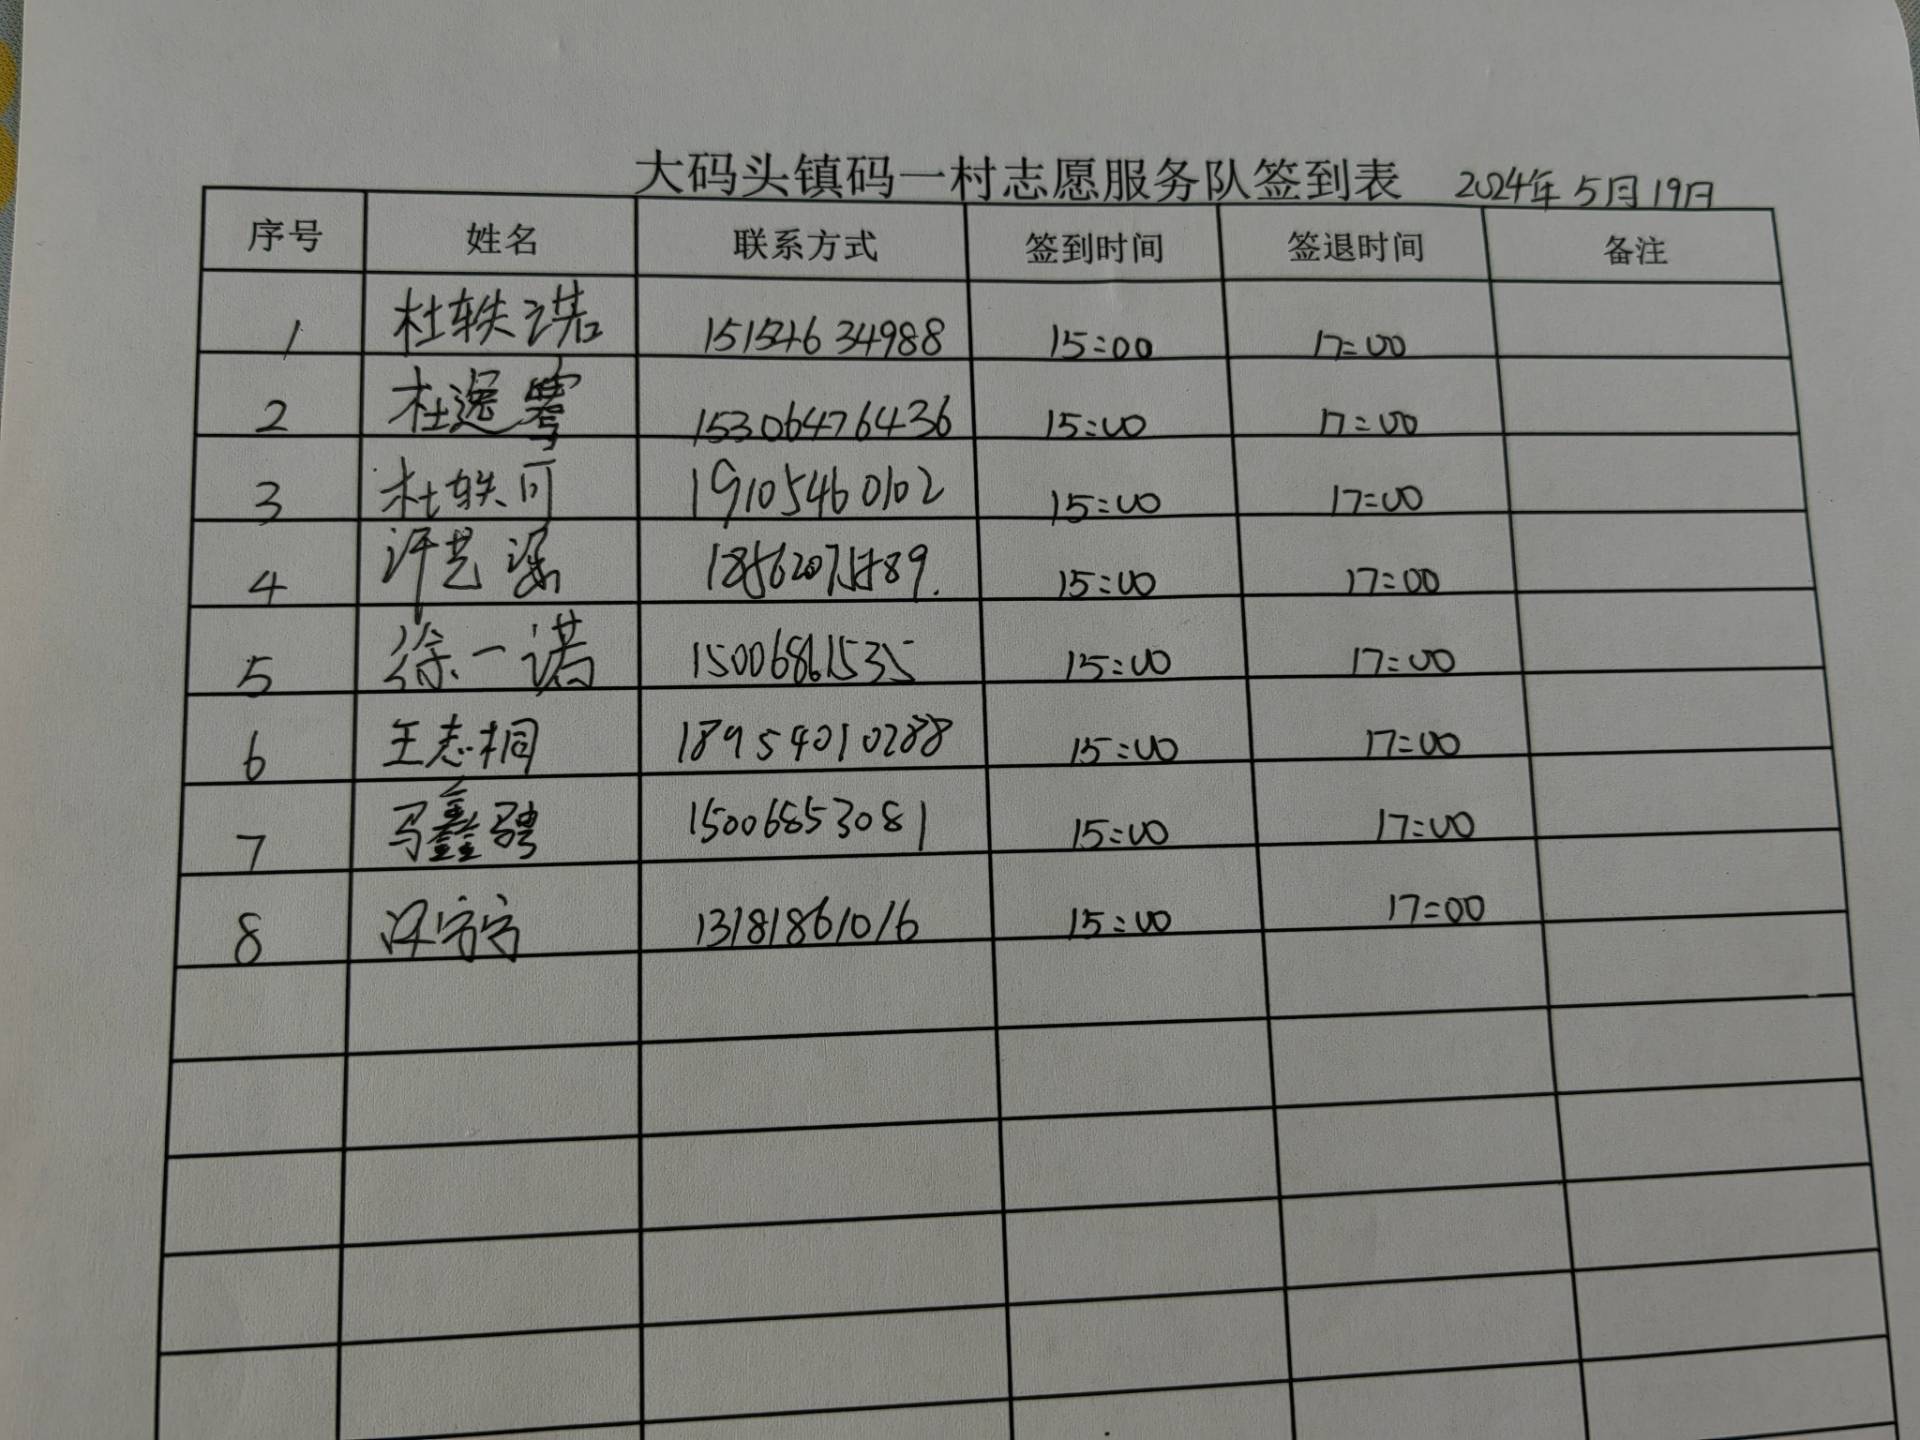 大码头镇码一村志愿服务队签到表 2024年5月19日
序号 姓名 联系方式 签到时间 签退时间 备注
1 杜轶诺 15154634988 15:00 17:00
2 杜逸雩 15306476436 15:00 17:00
3 杜轶可 19105460102 15:00 17:00
4 许艺 15:00 17:00
5 徐一诺 15006861535 15:00 17:00
6 王志桐 18954010288 15:00 17:00
7 马鑫骋 15006853081 15:00 17:00
8 13181861016 15:00 17:00